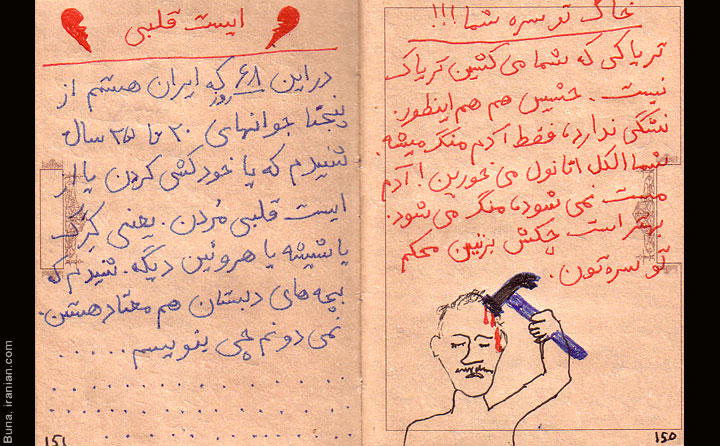 خاک تو سره شما!!!
تریاکی که شما می کشین تریاک
نیست. حشیش هم هم اینطور.
نشگی ندارد، فقط آدم منگ میشه.
شما الکل اتانول می خورین! آدم
مست نمی شود، منگ می شود.
بهتر است چکش بزنین محکم
تو سره تون.
۱۵۰
ایست قلبی
در این ۶۸ روز که ایران هستم از
پنجتا جوانهای ۲۰ تا ۲۵ سال
شنیدم که یا خودکشی کردن یا از
ایست قلبی مُردن. یعنی کِرَک
یا شیشه یا هروئین دیگه. شنیدم که
بچه های دبستان هم معتاد هستن.
نمی دونم چی بنویسم . . . . . .
۱۵۱
Buna, iranian.com